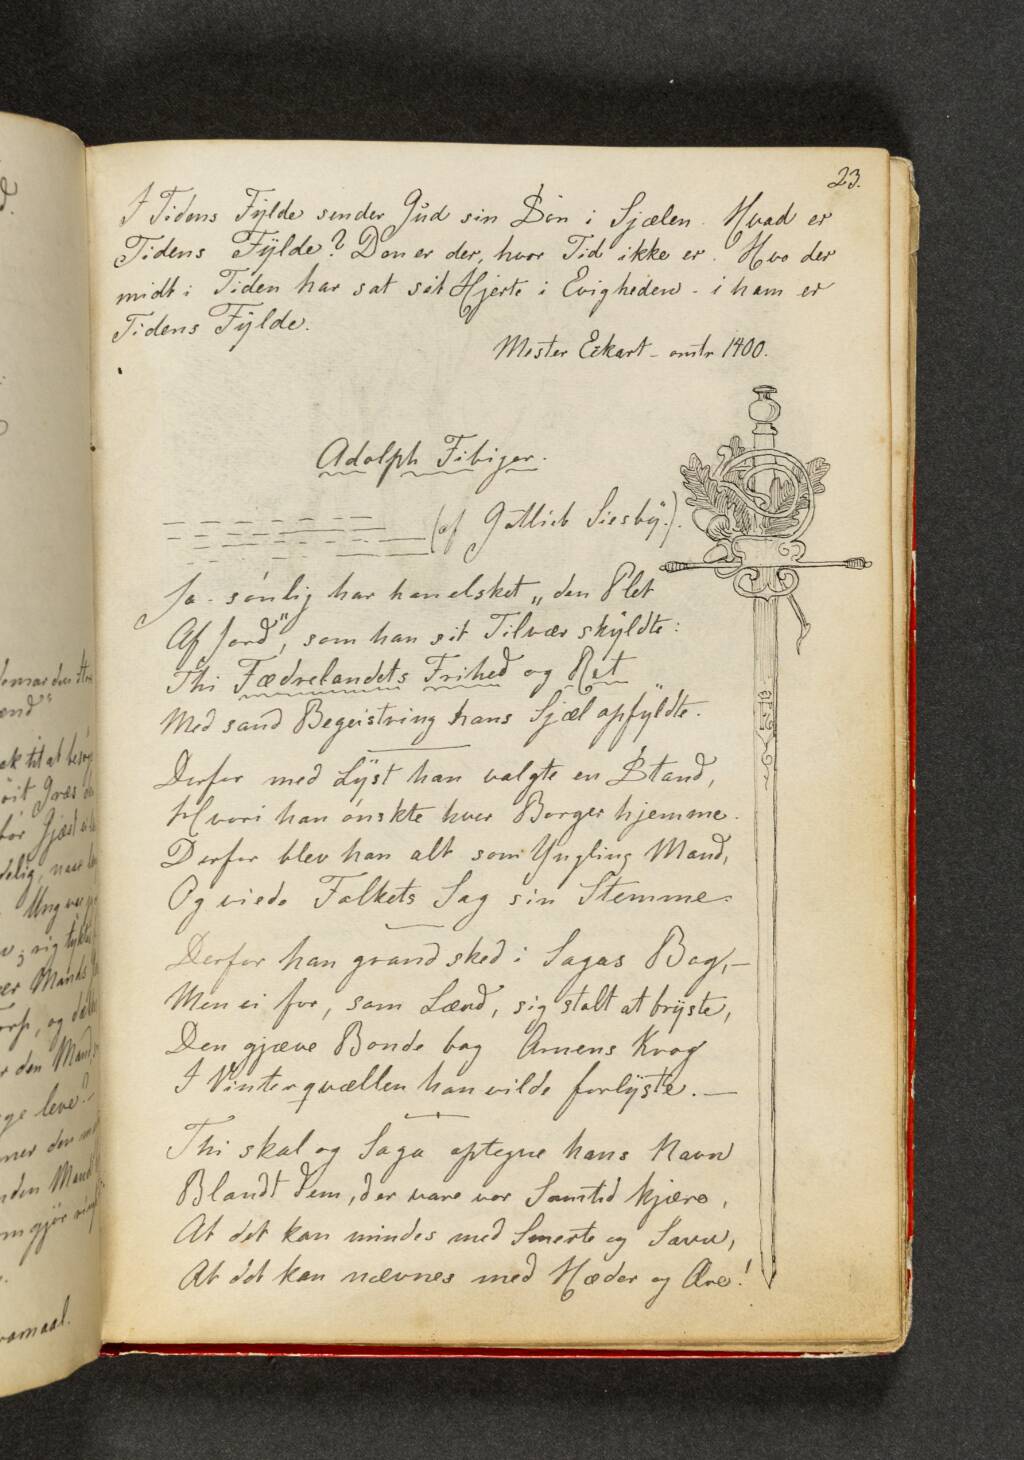 23.
I Tidens Fylde sender Gud sin Søn i Sjælen. Hvad er
Tidens Fylde? Den er der, hvor Tid ikke er. Hvo der
midt i Tiden har sat sit Hjerte i Evigheden - i ham er
Tidens Fylde.
Mester Eckart - omtr 1400.
Adolph Fibiger.
(af Gottlieb Siesby.).
Ja - sønlig har han elsket „den Plet
Af Jord", som han sit Tilvær skyldte:
Thi Fædrelandets Frihed og Ret
Med sand Begeistring hans Sjæl opfyldte.
Derfor med Lyst han valgte en Stand,
Hvori han ønskte hver Borger hjemme.
Derfor blev han alt som Yngling Mand,
Og viede Folkets Sag sin Stemme.
Derfor han grandsked i Sagas Bog, -
Men ei for, som Lærd, sig stolt at bryste,
Den gjæve Bonde bag Arnens Krog
I Vinterqvællen han vilde forlyste. -
Thi skal og Saga optegne hans Navn
Blandt dem, der vare vor Samtid kjære,
At det kan mindes med Smerte og Savn,
At det kan nævnes med Hæder og Ære!
ænd"
ak tit at
Græs
for Gjæst
delig, naar
Ung var
rig
Mands
og
r den Mand
ge leve?
mer den
nden Mand
m gjør